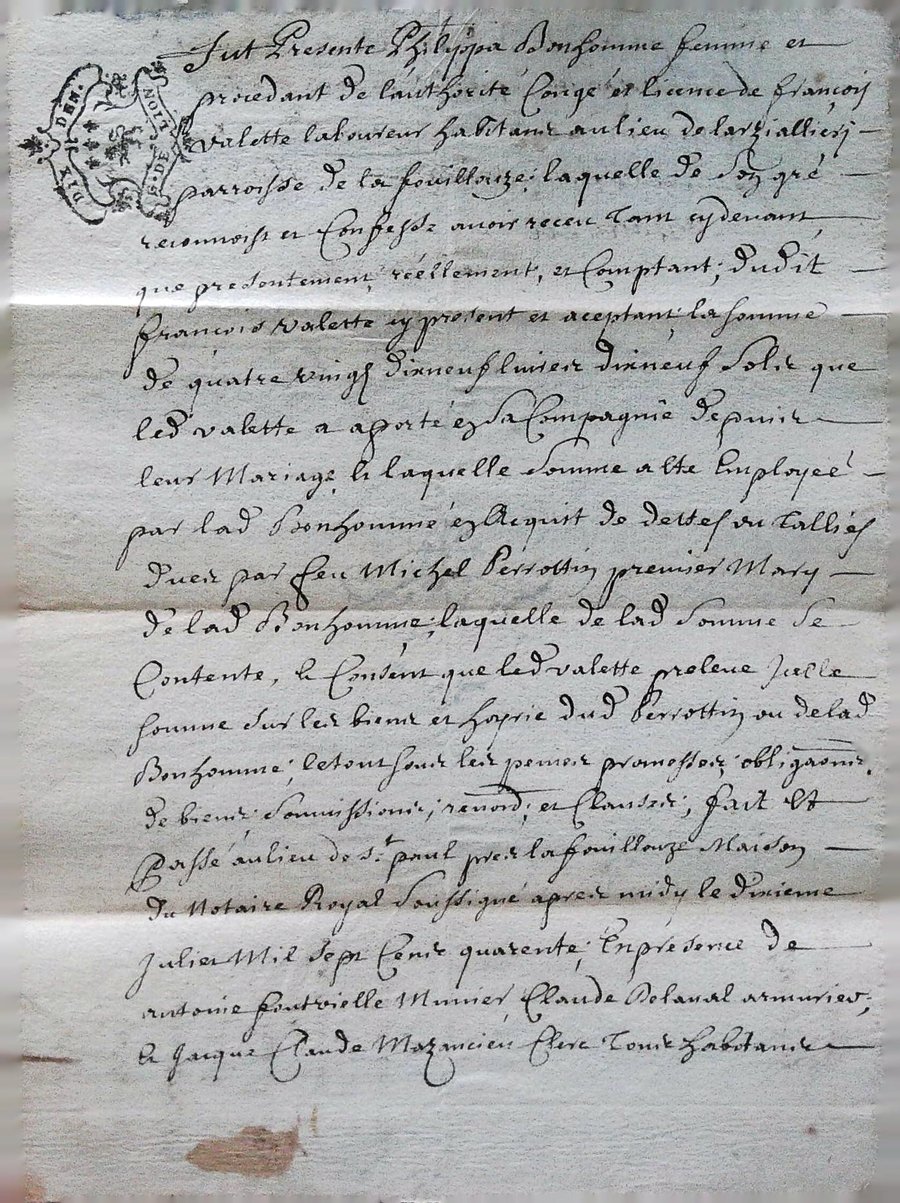 DIX DEN.
S. DE LION
Fut Presente Philyppa Bonhomme femme et
procedant de lauthorité Congé et licence de françois
valette laboureur habitant au lieu de larziallieri
parroisse de la fouillouze; laquelle de son gré
reconnoist et Confesse avoir receu Tant cy devant
que presentement, réellement, et Comptant, dudit
françois valette cy present et aceptant, la somme
de quatre vingt dixneuf livres dixneuf Sols que
led valette a aporté en Sa Compagnie depuis
leur Mariage, & laquelle Somme a Eté Employeé
par lad Bonhomme en Acquit de dettes ou Tallies
dues par feu Michel Perrottin premier Mary
de lad Bonhomme, laquelle de lad Somme Se
Contente, & Consent que led valette preleve Jcelle
somme Sur les biens et hoprie dud Perrottin ou de lad
Bonhomme; le tout sous les peines promesses, obligaons
de biens, Soumissions, renond, et Clauses, fait Et
Passé au lieu de St. paul pres la fouillouze Maison
du Notaire Royal Soussigné apres midy le dixieme
Juliet Mil Sept Cens quarente; En presence de
antoine fontvielle Munier, Claude Delaval armurier,
& Jacque Claude Mazancieu Clerc Tous habitans